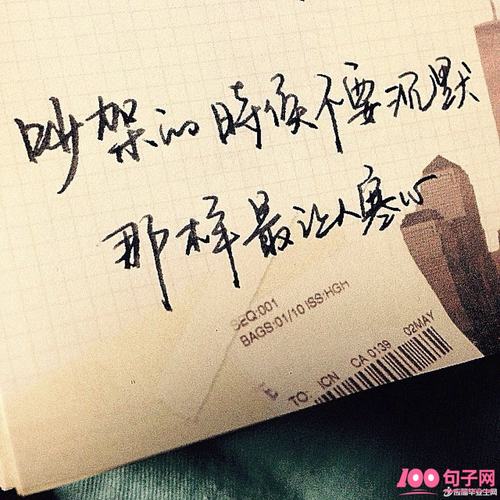 吵架的時候不要沉默
那样最让人寒心
SEQ:001
BAGS:01/10 ISS:HGH
TO: ICN CA 0139 02MAY
100句子网
应届毕业生网